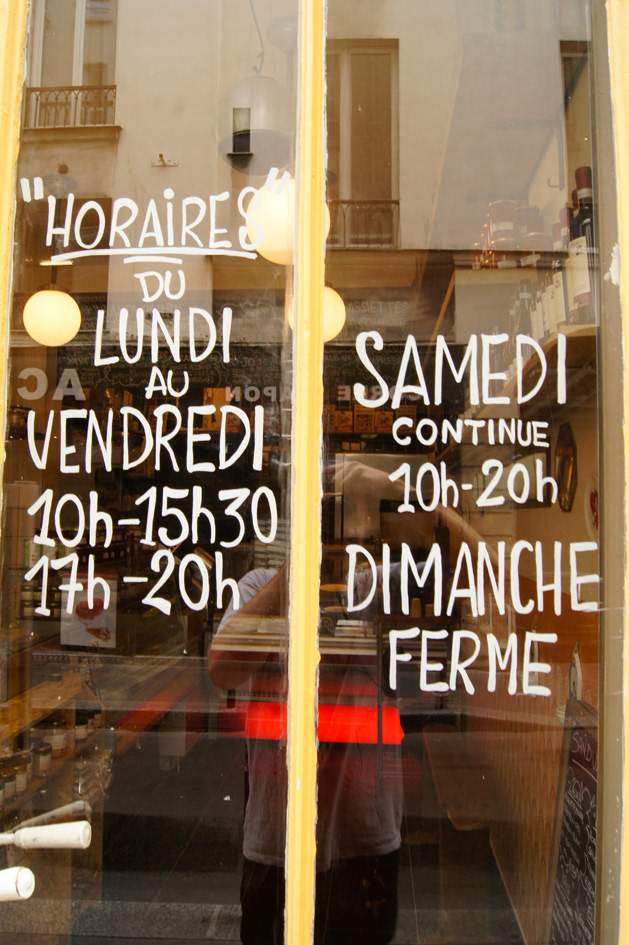 "HORAIRES"
DU
LUNDI
AU
VENDREDI
10h-15h30
17h-20h
SAMEDI
CONTINUE
10h-20h
DIMANCHE
FERME